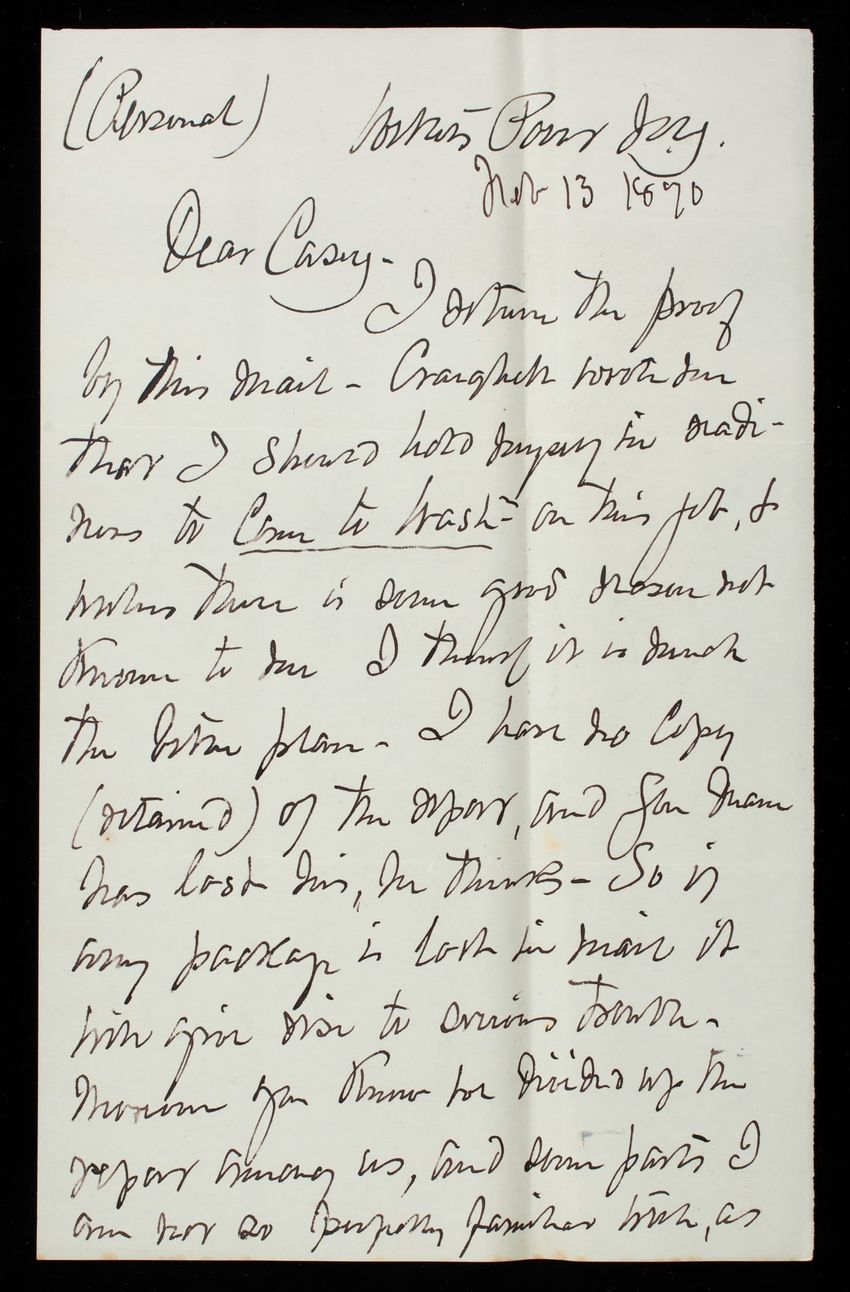 (Personal)
Willets Point N.Y.
Feb 13 1870
Dear Casey-
I return the proof
by this mail - Craighill wrote me
that I should hold myself in readi-
ness to Come to Wash= on this job, &
unless there is some good reason not
known to me I think it is much
the better plan - I have no copy
(retained) of the report, and you know
has lost his, he thinks - So if
any package is lost in mail it
will give rise to serious trouble -
Moreover you know we divided up the
report among us, and some parts I
am not so perfectly familiar with, as